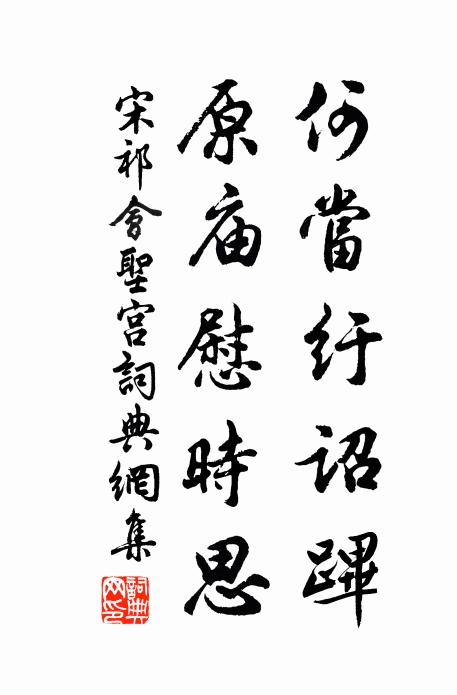 何當紆詔蹕
原庙慰時思
宋祁會聖宮詞典網集
詞典网印